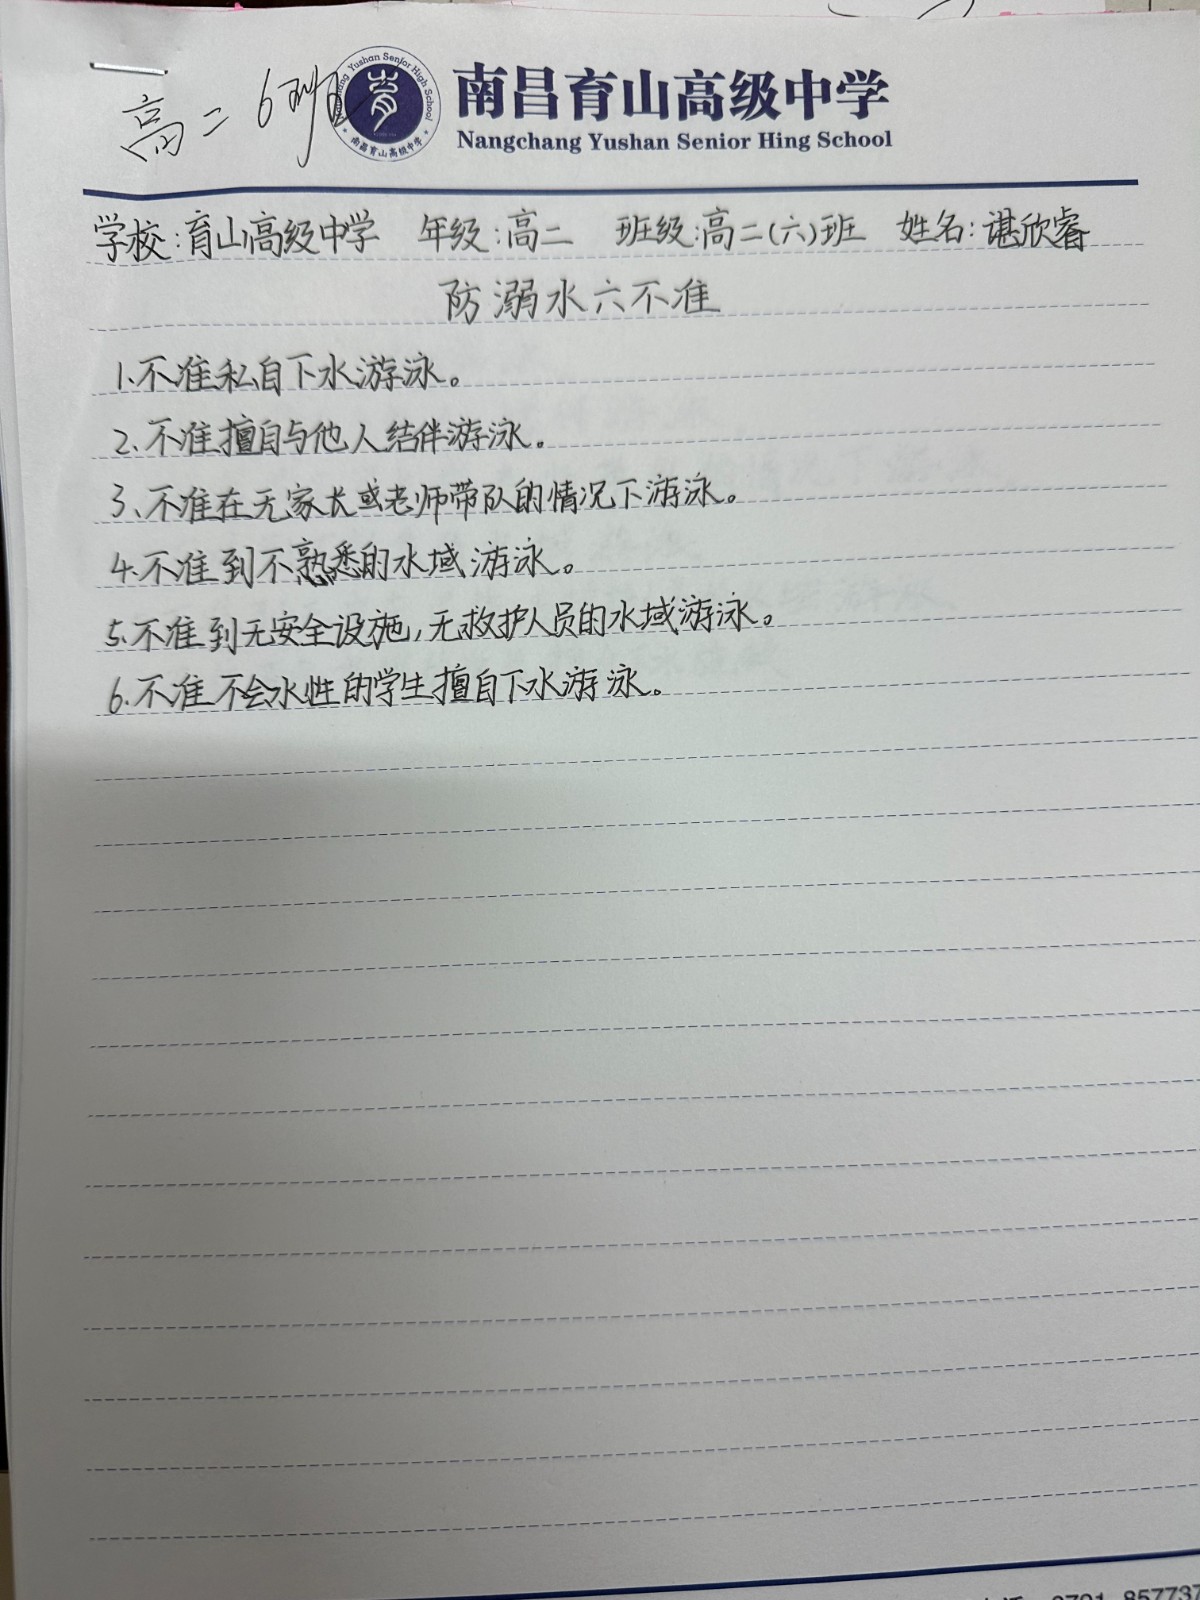 高二6班
Nangchang Yushan Senior High School
南昌育山高级中学
南昌育山高级中学
Nangchang Yushan Senior Hing School
学校:育山高级中学 年级:高二 班级:高二(六)班 姓名:谌欣睿
防溺水六不准
1.不准私自下水游泳。
2.不准擅自与他人结伴游泳。
3、不准在无家长或老师带队的情况下游泳。
4.不准到不熟悉的水域游泳。
5.不准到无安全设施,无救护人员的水域游泳。
6.不准不会水性的学生擅自下水游泳。
0791 857737